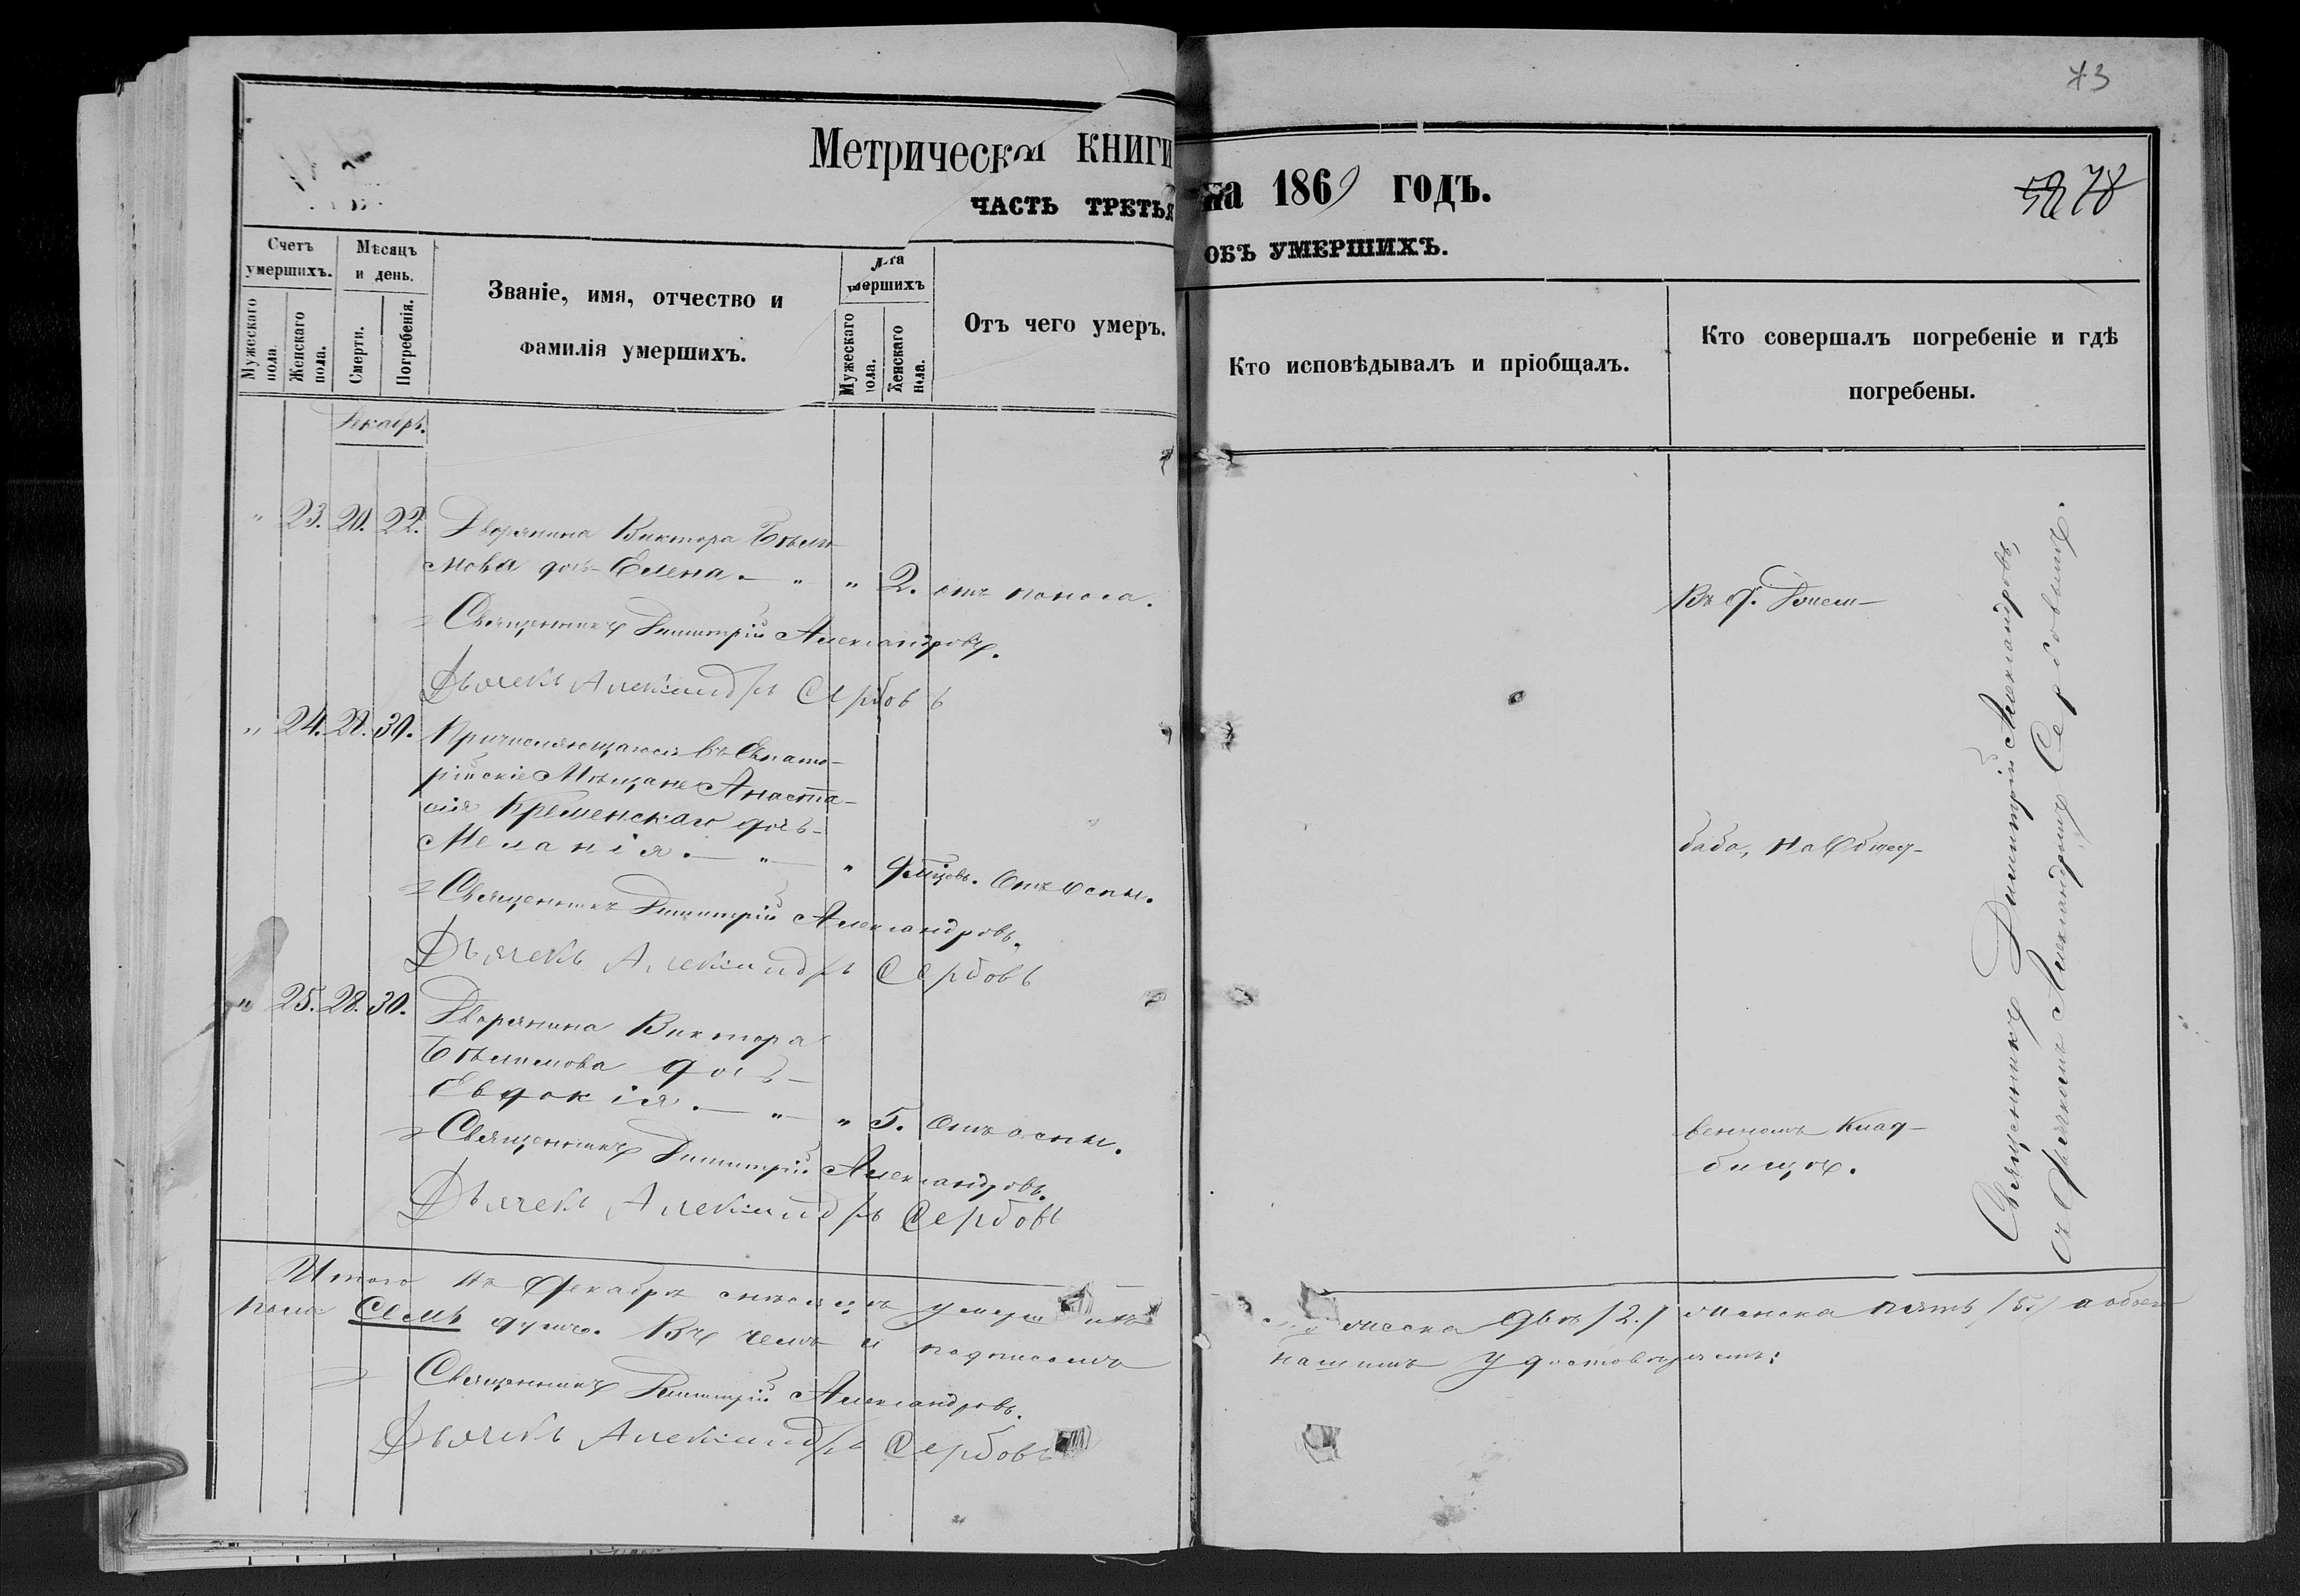 73
Метрической книги на 1869 годъ.
52 78
ЧАСТЬ ТРЕТЬЯ ОБЪ УМЕРШИХЪ.
Счетъ умершихъ.
Мужескаго пола.
Женскаго пола.
Мѣсяцъ и день.
Смерти.
Погребенія.
Званіе, имя, отчество и
фамилія умершихъ.
Лѣта умершихъ
Мужескаго пола.
Женскаго пола.
Отъ чего умеръ.
Кто исповѣдывалъ и пріобщалъ.
Кто совершалъ погребеніе и гдѣ
погребены.
Декабрь.
" 23. 20. 22. Дворянина Виктора Бѣли-
мова дочь Елена. — " " 2. отъ поноса.
Священникъ Димитрій Александровъ.
Дьячекъ Александръ Сербовъ
" 24. 28. 30. Причисляющагося въ Евпато-
рійскіе Мѣщане Анаста-
сія Кременскаго дочь
Меланія. — " — " 9 мѣсяцовъ. Отъ оспы.
Священникъ Димитрій Александровъ.
Дьячекъ Александръ Сербовъ
" 25. 28. 30. Дворянина Виктора
Бѣлимова дочь
Евдокія. — " — " 5. Отъ оспы.
Священникъ Димитрій Александровъ.
Дьячекъ Александръ Сербовъ
Въ д.
баба, на Общест-
венномъ Клад-
бищѣ.
Священникъ Димитрій Александровъ,
съ Дьячкомъ Александромъ Сербовымъ.
Итого въ Декабрѣ мѣсяцѣ умершихъ мужеска двѣ /2./ женска пять /5./ а обоего
пола Семь душъ. Въ чемъ и подписомъ нашимъ удостовѣряемъ:
Священникъ Димитрій Александровъ.
Дьячекъ Александръ Сербовъ